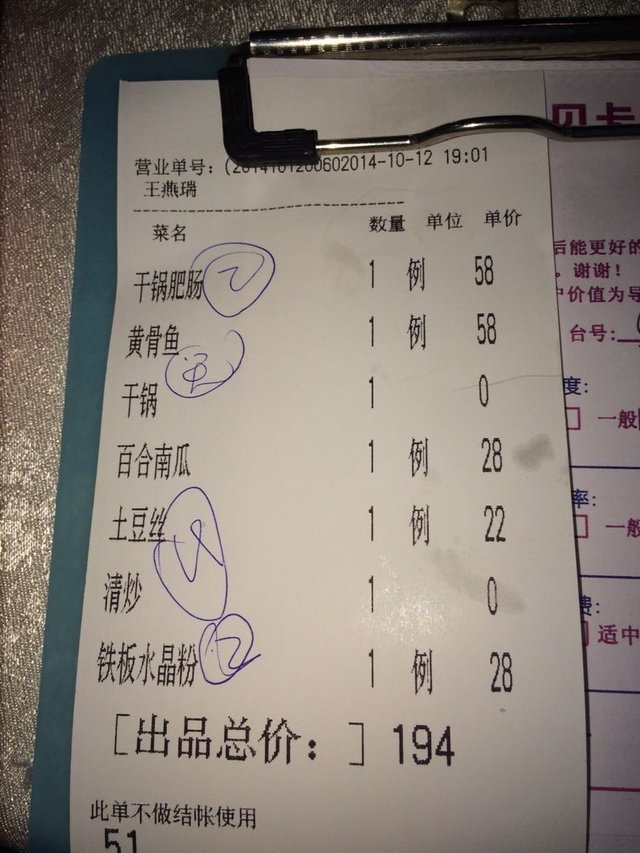 营业单号:(2014101200602014-10-12 19:01
王燕瑞
菜名 数量 单位 单价
干锅肥肠 1 例 58
黄骨鱼 1 例 58
干锅 1 0
百合南瓜 1 例 28
土豆丝 1 例 22
清炒 1 0
铁板水晶粉 1 例 28
[出品总价: ] 194
此单不做结帐使用
51
贝卡
后能更好的
。谢谢!
中价值为导
台号:
度:
一般
率:
一般
费:
适中